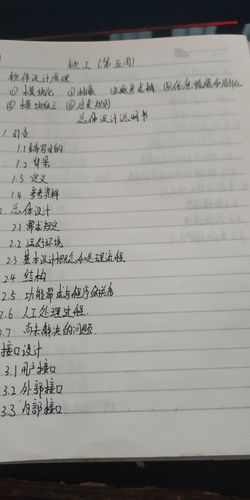 软工(第五周)
软件设计原理
① 模块化 ② 抽象 ③ 逐步求精 ④ 信息隐藏和局部化
⑤ 模块独立 ⑥ 启发规则
总体设计说明书
1. 引言
1.1 编写目的
1.2 背景
1.3 定义
1.4 参考资料
2. 总体设计
2.1 需求规定
2.2 运行环境
2.3 基本设计概念和处理流程
2.4 结构
2.5 功能需求与程序的关系
2.6 人工处理过程
2.7 尚未解决的问题
接口设计
3.1 用户接口
3.2 外部接口
3.3 内部接口